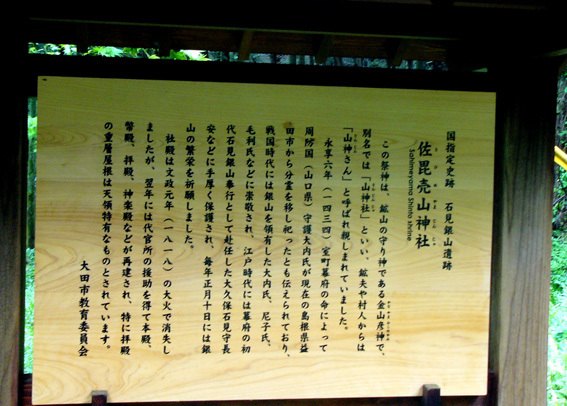 国指定史跡 石見銀山遺跡
佐毘売山神社
Sahimeyama Shinto shrine
この祭神は、鉱山の守り神である金山彦神で、
別名では「山神社」といい、鉱夫や村人からは
「山神さん」と呼ばれ親しまれていました。
永享六年(一四三四)室町幕府の命によって
周防国(山口県)守護大内氏が現在の島根県益
田市から分霊を移し祀ったとも伝えられており、
戦国時代には銀山を領有した大内氏、尼子氏、
毛利氏などに崇敬され、江戸時代には幕府の初
代石見銀山奉行として赴任した大久保石見守長
安などに手厚く保護され、毎年正月十日には銀
山の繁栄を祈願しました。
社殿は文政元年(一八一八)の大火で消失し
ましたが、翌年には代官所の援助を得て本殿、
幣殿、拝殿、神楽殿などが再建され、特に拝殿
の重層屋根は天領特有なものとされています。
大田市教育委員会